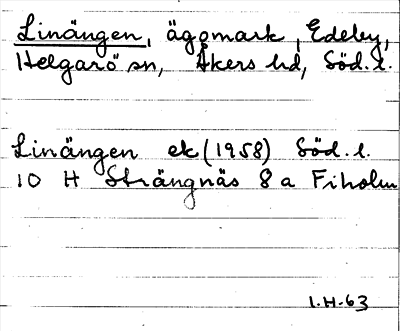 Linängen, ägomark, Edeby,
Helgarö sn, Åkers hd, Söd. l.
Linängen ek (1958) Söd. l.
10 H Strängnäs 8 a Fiholm
I.H-63